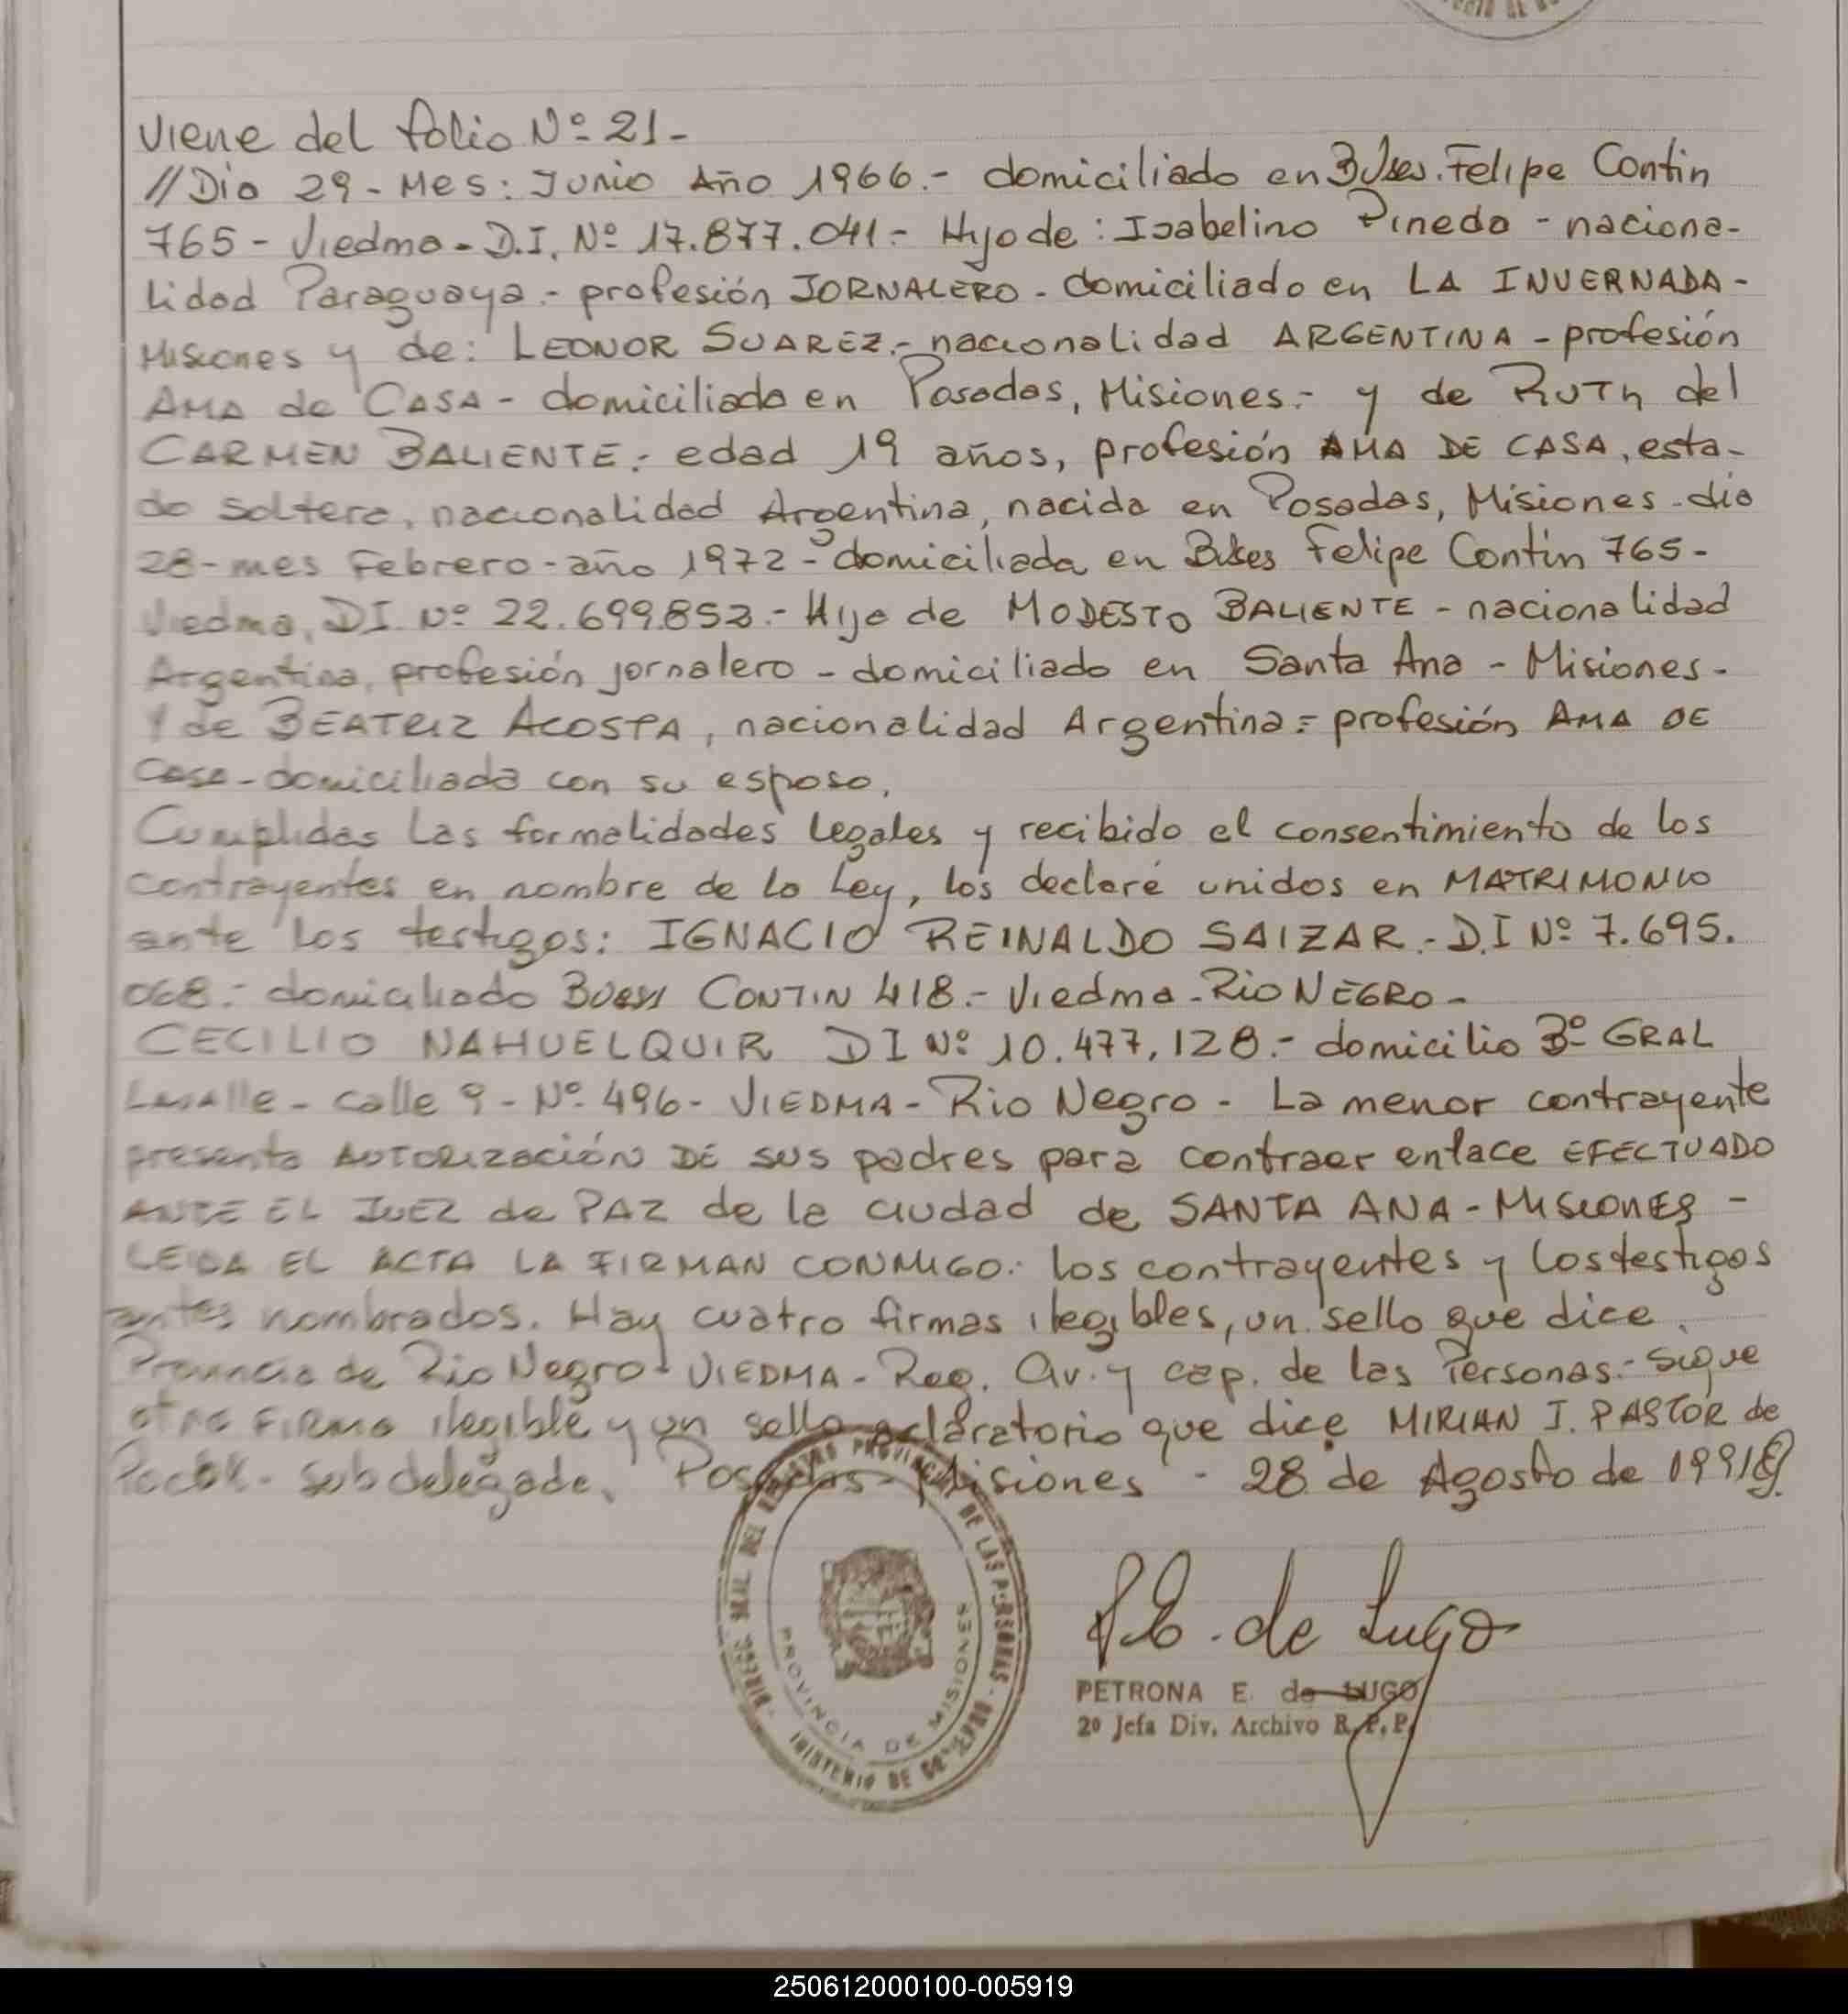 Viene del folio Nº 21-
//Dia 29-Mes: Junio Año 1966.- domiciliado en Felipe Contin
765- Viedma- D.I. Nº 17.877.041.- Hijo de: Isabelino Pineda - naciona-
lidad Paraguaya.- profesión JORNALERO- domiciliado en LA INVERNADA-
Misiones y de: LEONOR SUAREZ.- nacionalidad ARGENTINA - profesión
AMA de CASA- domiciliada en Posadas, Misiones.- y de RUTH del
CARMEN BALIENTE.- edad 19 años, profesión AMA DE CASA, esta-
do soltera, nacionalidad Argentina, nacida en Posadas, Misiones-dia
28-mes Febrero-año 1972- domiciliada en Felipe Contin 765-
Viedma, DI. Nº 22.699.852.- Hija de MODESTO BALIENTE - nacionalidad
Argentina, profesión jornalero - domiciliado en Santa Ana - Misiones-
Y de BEATRIZ ACOSTA, nacionalidad Argentina.- profesión AMA DE
Casa-domiciliada con su esposo.
Cumplidas las formalidades legales y recibido el consentimiento de los
contrayentes en nombre de la Ley, los declaré unidos en MATRIMONIO
ante los testigos: IGNACIO REINALDO SAIZAR.- D.I Nº 7.695.
068.- domiciliado CONTIN 418.- Viedma-Rio NEGRO-
CECILIO NAHUELQUIR DI Nº 10.477.128.- domicilio Bº GRAL
Lavalle- calle 9- Nº 496- VIEDMA- Rio Negro - La menor contrayente
presenta AUTORIZACIÓN DE sus padres para contraer enlace EFECTUADO
ANTE EL JUEZ de PAZ de la ciudad de SANTA ANA-MISIONES -
LEIDA EL ACTA LA FIRMAN CONMIGO: los contrayentes y los testigos
antes nombrados. Hay cuatro firmas ilegibles, un sello que dice.
Provincia de Rio Negro- VIEDMA- Reg. Civ. y cap. de las Personas.- Sigue
otra FIRMA ilegible y un sello aclaratorio que dice MIRIAN I. PASTOR de
Subdelegada. Posadas- Misiones - 28 de Agosto de 1991
PROVINCIAL DE LAS PERSONAS
PROVINCIA DE MISIONES
P.E. de Lugo
PETRONA E. de LUGO
2º Jefa Div. Archivo R.P.P.
250612000100-005919